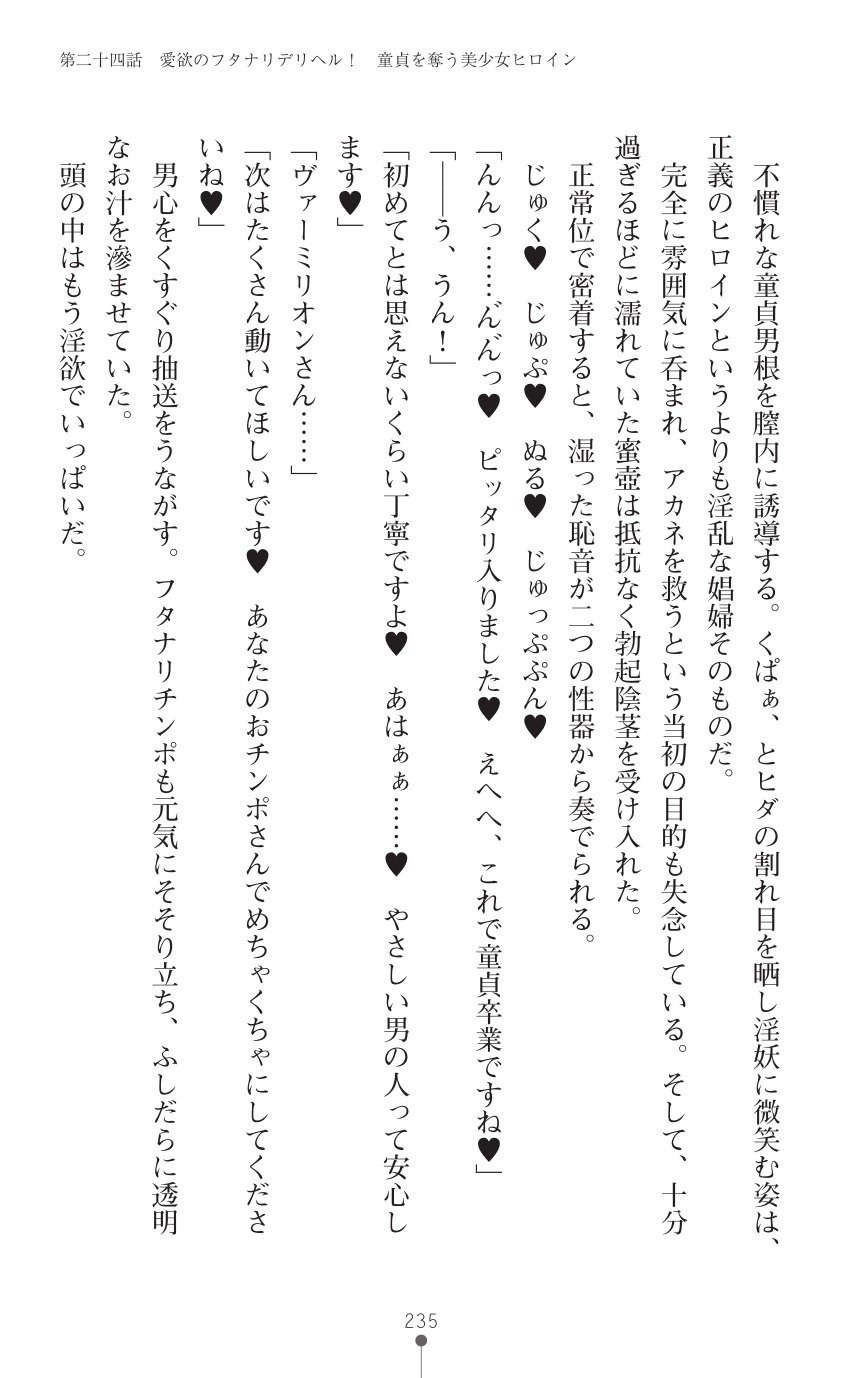 第二十四話　愛欲のフタナリデリヘル！　童貞を奪う美少女ヒロイン
　不慣れな童貞男根を膣内に誘導する。くぱぁ、とヒダの割れ目を晒し淫妖に微笑む姿は、
正義のヒロインというよりも淫乱な娼婦そのものだ。
　完全に雰囲気に呑まれ、アカネを救うという当初の目的も失念している。そして、十分
過ぎるほどに濡れていた蜜壺は抵抗なく勃起陰茎を受け入れた。
　正常位で密着すると、湿った恥音が二つの性器から奏でられる。
　じゅく♥　じゅぷ♥　ぬる♥　じゅっぷぷん♥
「んんっ……ん゛ん゛っ♥　ピッタリ入りました♥　えへへ、これで童貞卒業ですね♥」
「――う、うん！」
「初めてとは思えないくらい丁寧ですよ♥　あはぁぁ……♥　やさしい男の人って安心し
ます♥」
「ヴァーミリオンさん……」
「次はたくさん動いてほしいです♥　あなたのおチンポさんでめちゃくちゃにしてくださ
いね♥」
　男心をくすぐり抽送をうながす。フタナリチンポも元気にそそり立ち、ふしだらに透明
なお汁を滲ませていた。
　頭の中はもう淫欲でいっぱいだ。
235